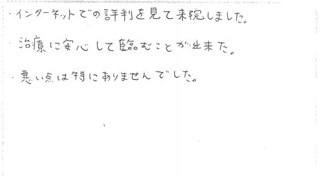 ・インターネットでの評判を見て来院しました。
・治療に安心して臨むことが出来た。
・悪い点は特にありませんでした。